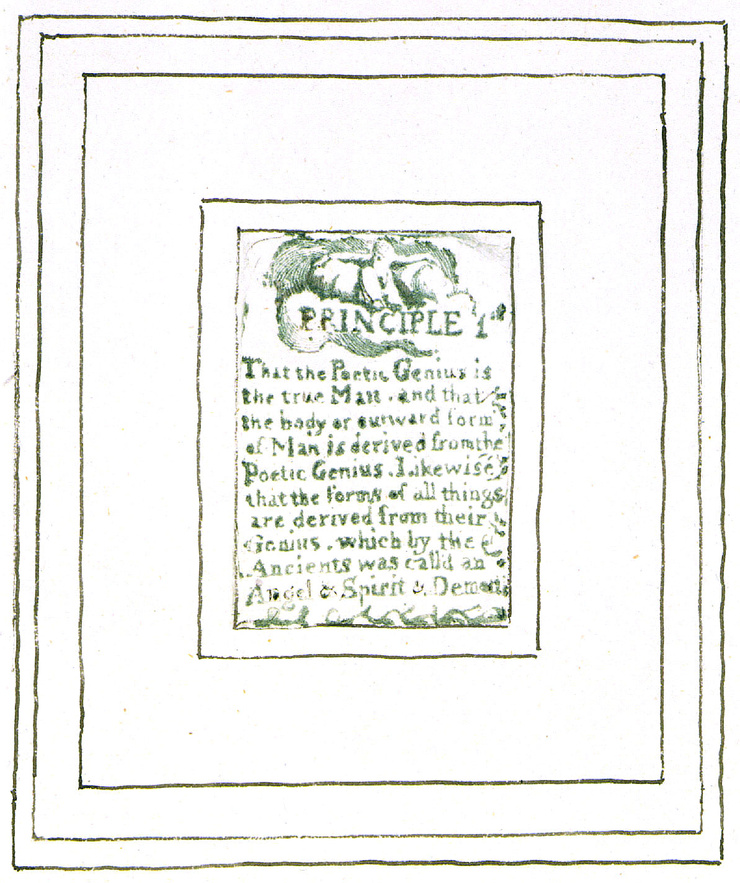 PRINCIPLE 1st
That the Poetic Genius is
the true Man. and that
the body or outward form
of Man is derived from the
Poetic Genius. Likewise
that the forms of all things
are derived from their
Genius. which by the
Ancients was call'd an
Angel & Spirit & Demon